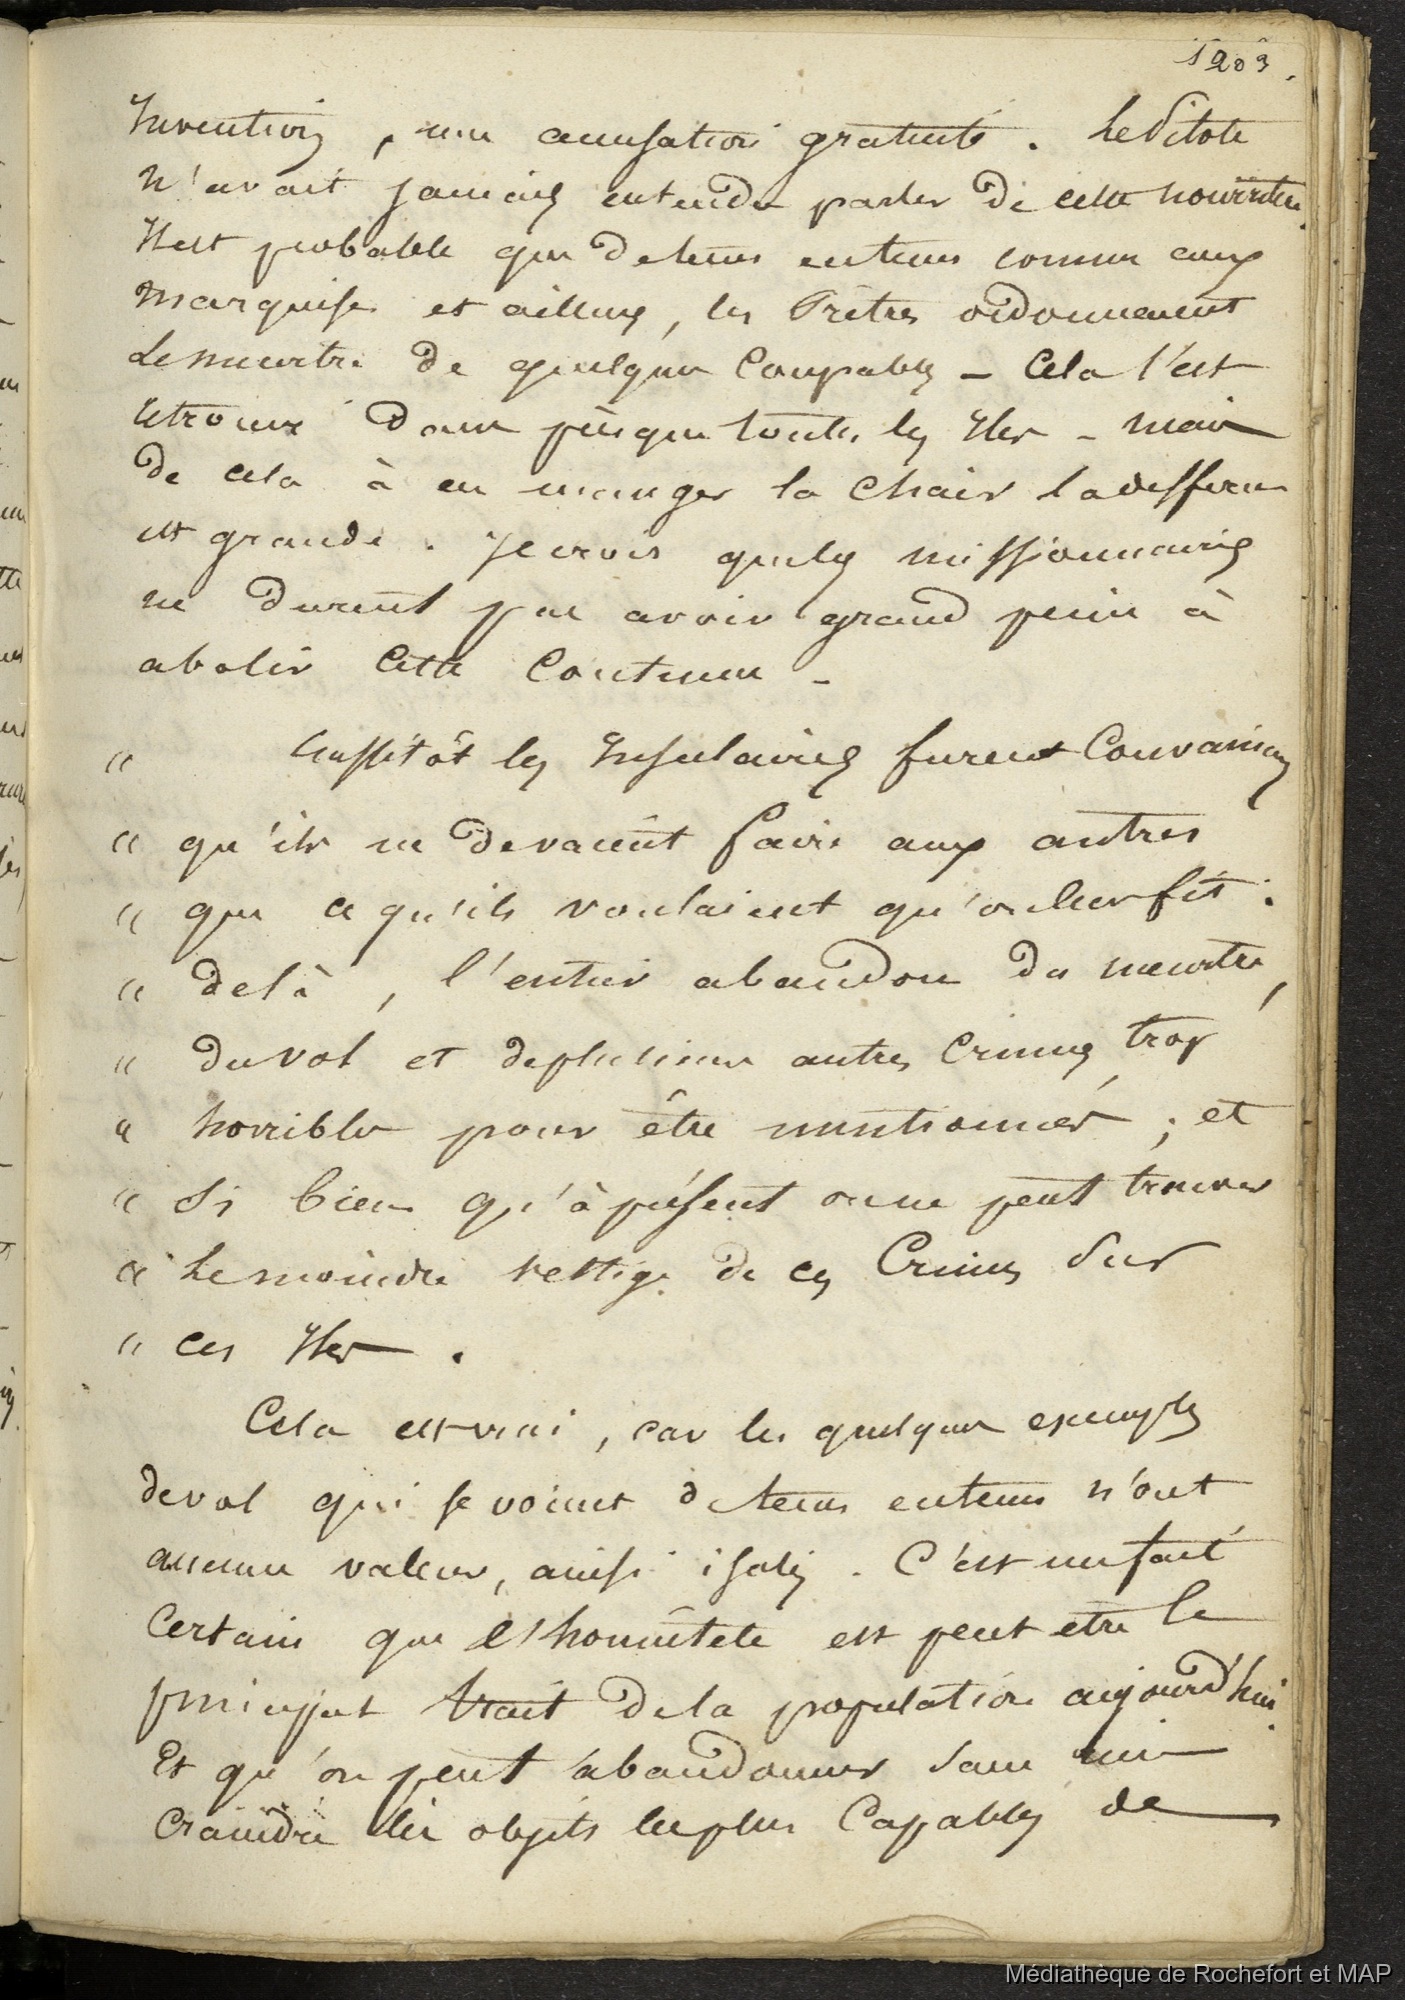 1203.
Invention, une accusation gratuite. Le Pilote
n'avait jamais entendu parler de cette nourriture.
Il est probable que de tems en tems comme aux
Marquises et ailleurs, les Prêtres ordonnaient
le meurtre de quelques Coupables _ Cela s'est
retrouvé dans presque toutes les Iles _ mais
de cela à en manger la chair la difference
est grande. Je crois que les missionnaires
ne durent pas avoir grand peine à
abolir cette Coutume _
" Aussitôt les Insulaires furent Convaincus
" qu'ils ne devaient faire aux autres
" que ce qu'ils voulaient qu'on leur fit:
" de là, l'entier abandon du meurtre,
" du vol et de plusieurs autres Crimes, trop
" horribles pour être mentionnés; et
" si bien qu'à présent on ne peut trouver
" le moindre vestige de ces Crimes Sur
" ces Iles.
Cela est vrai, car les quelques exemples
de vol qui se voient de tems en tems n'ont
aucune valeur, ainsi isolés. C'est un fait
Certain que l'honnêteté est peut etre le
principal trait de la population aujourd'hui.
Et qu'on peut abandonner sans rien
craindre les objets les plus Capables de